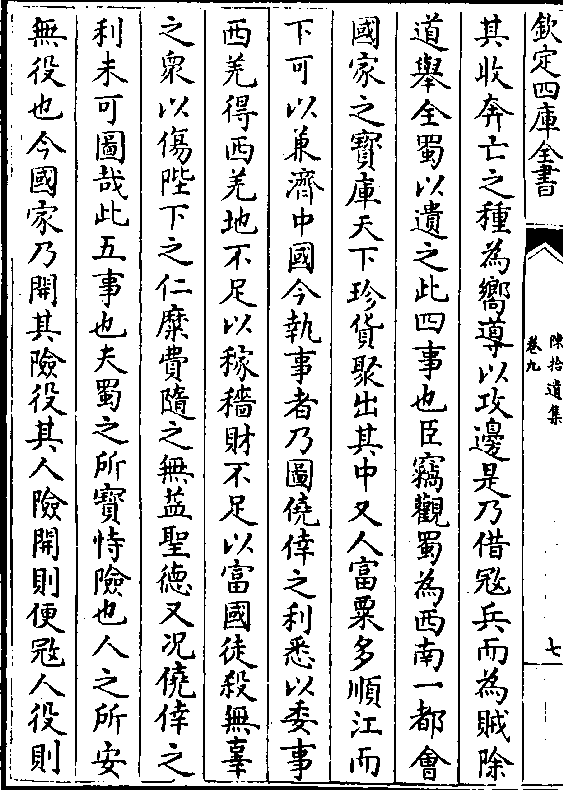 欽定四庫全書
陳拾遺集
卷九
七
其收奔亡之種為嚮導以攻邊是乃借寇兵而為賊除
道舉全蜀以遺之此四事也臣竊觀蜀為西南一都會
國家之寶庫天下珍貨聚出其中又人富粟多順江而
下可以兼濟中國今執事者乃圖僥倖之利悉以委事
西羌得西羌地不足以稼穡財不足以富國徒殺無辜
之衆以傷陛下之仁糜費隨之無益聖德又况僥倖之
利未可圖哉此五事也夫蜀之所寶恃險也人之所安
無役也今國家乃開其險役其人險開則便寇人役則